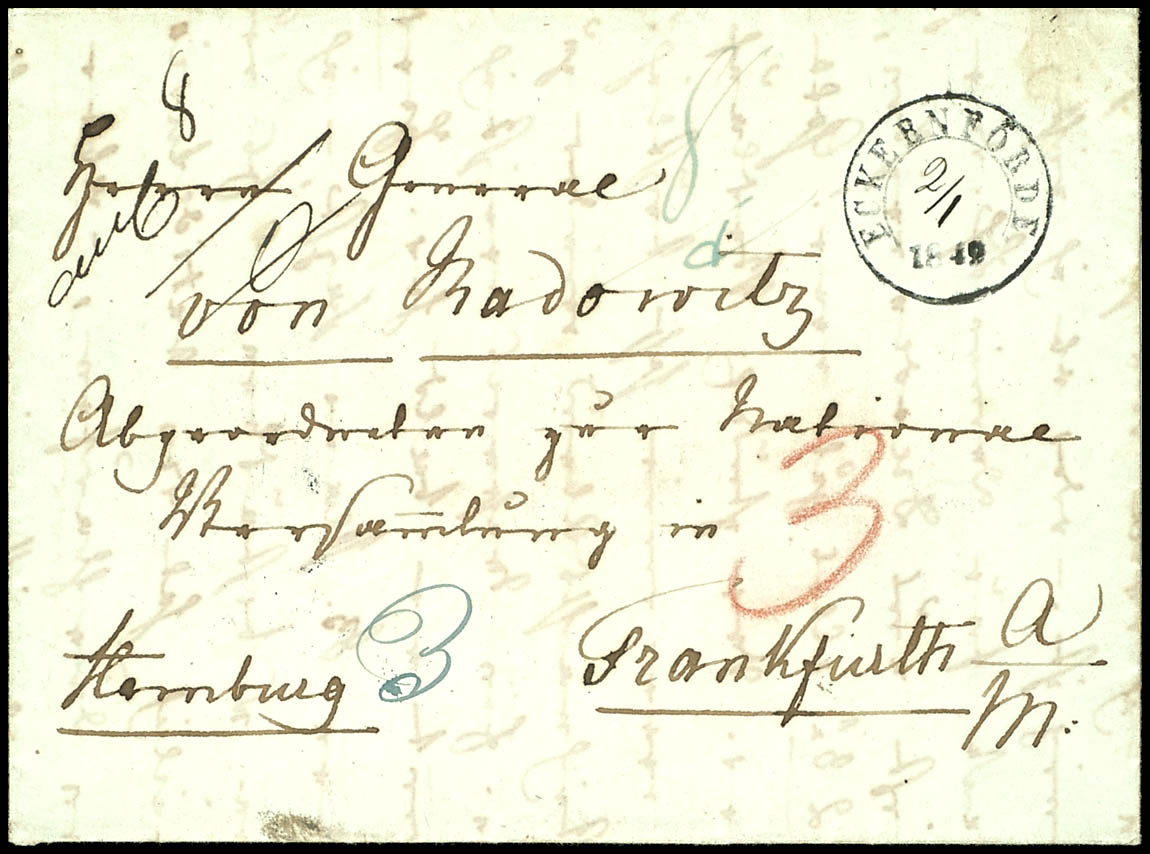 8
Herrn General
8
von Radowitz
Abgeordneten zur National
Versam̅lung in
3
Hamburg 3 Frankfurth a/M:
ECKERNFÖRDE
2/1
1849